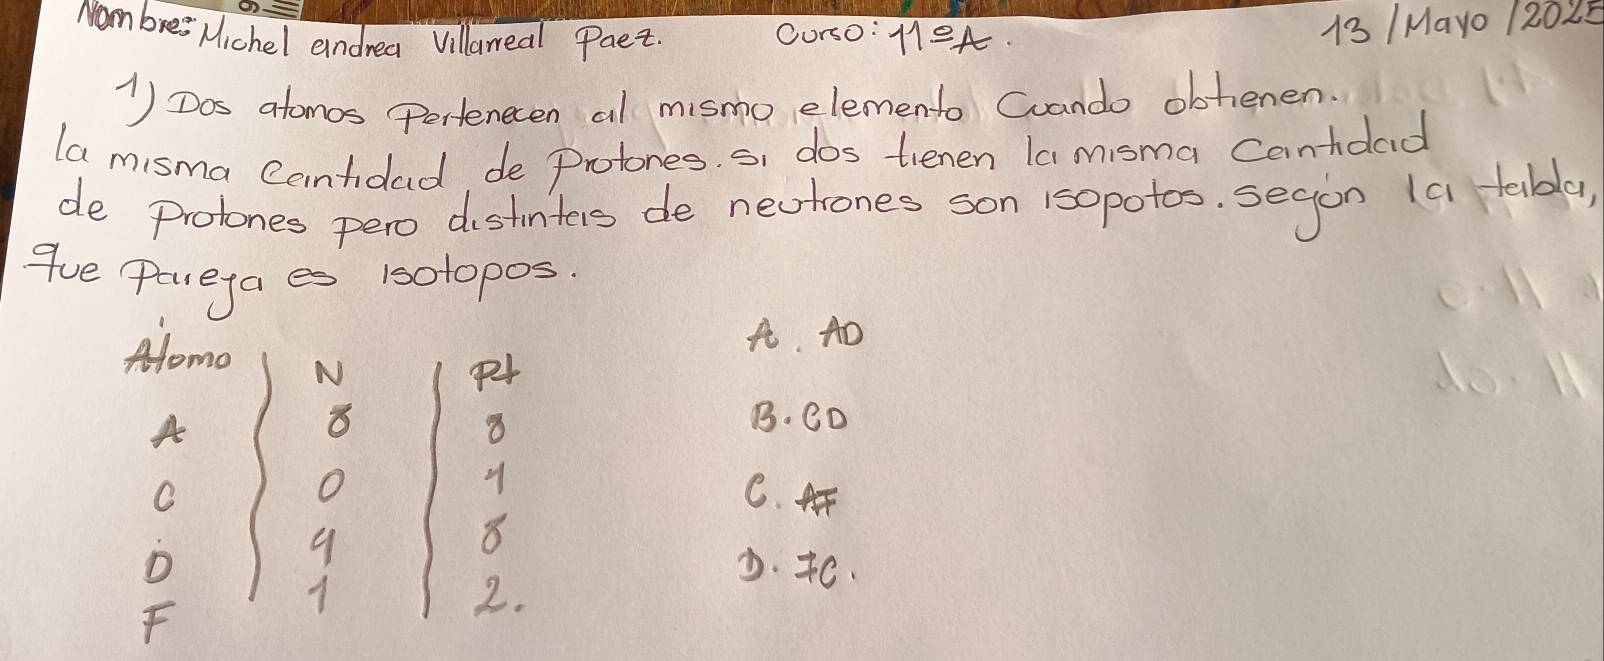 Nombre: Michel andrea Villarreal Paez. Curso: 11ºA. 13/Mayo/2025
1) Dos atomos Pertenecen al mismo elemento Cuando obtienen.
la misma Cantidad de Protones. si dos tienen la misma Cantidad
de Protones pero distintas de neutrones son isopotos. según la tabla,
que Pareja es isotopos.
Atomo N Pt
A 8 8
C 0 1
D 9 8
F 1 2.
A. AD
B. CD
C. AF
D. FC.